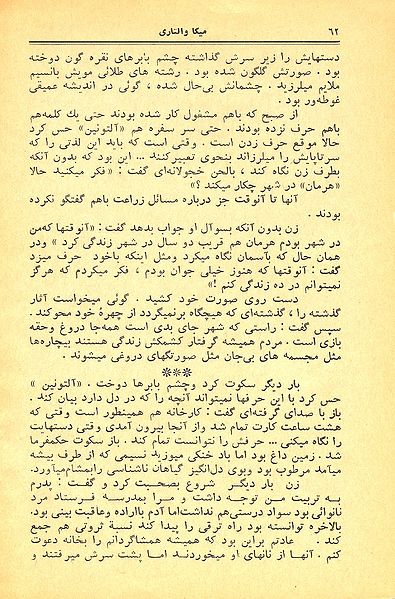 ۶۲
میکا والتاری
دستهایش را زیر سرش گذاشته چشم بابرهای نقره گون دوخته
بود . صورتش گلگون شده بود . رشته های طلائی مویش بانسیم
ملایم میلرزید . چشمانش بی‌حال شده ، گوئی در اندیشه عمیقی
غوطه‌ور بود .
از صبح که باهم مشغول کار شده بودند حتی یك کلمه‌هم
باهم حرف نزده بودند . حتی سر سفره هم «آلتونین» حس کرد
حالا موقع حرف زدن است . وقتی است که باید این لذتی را که
سرتاپایش را میلرزاند بنحوی تعبیر کنند ... این بود که بدون آنکه
بطرف زن نگاه کند ، بالحن خجولانه‌ای گفت : «فکر میکنید حالا
«هرمان» در شهر چکار میکند ؟»
آنها تا آنوقت جز درباره مسائل زراعت باهم گفتگو نکرده
بودند .
زن بدون آنکه بسوآل او جواب بدهد گفت : «آنوقتها که من
در شهر بودم هرمان هم قریب دو سال در شهر زندگی کرد » ودر
همان حال که بآسمان نگاه میکرد ومثل اینکه باخود حرف میزد
گفت : آنوقتها که هنوز خیلی جوان بودم ، فکر میکردم که هرگز
نمیتوانم در ده زندگی کنم !»
دست روی صورت خود کشید . گوئی میخواست آثار
گذشته را ، گذشته‌ای که هیچگاه برنمیگردد از چهرهٔ خود محو کند .
سپس گفت : راستی که شهر جای بدی است همه‌جا دروغ وحقه
بازی است . مردم همیشه گرفتار کشمکش زندگی هستند بیچاره‌ها
مثل مجسمه های بی‌جان مثل صورتکهای دروغی میشوند .
***
بار دیگر سکوت کرد وچشم بابرها دوخت . «آلتونین »
حس کرد با این حرفها نمیتواند آنچه را که در دل دارد بیان کند .
باز با صدای گرفته‌ای گفت : کارخانه هم همینطور است وقتی که
هشت ساعت کارت تمام شد واز آنجا بیرون آمدی وقتی دستهایت
را نگاه میکنی ... حرفش را نتوانست تمام کند . باز سکوت حکمفرما
شد . زمین داغ بود اما باد خنکی میوزید نسیمی که از طرف بیشه
میآمد مرطوب بود وبوی دل‌انگیز گیاهان ناشناسی را بمشام میآورد.
زن بار دیگر شروع بصحبت کرد و گفت : پدرم
به تربیت من توجه داشت و مرا بمدرسه فرستاد مرد
نانوائی بود سواد درستی‌هم نداشت اما آدم با اراده وعاقبت بینی بود.
بالاخره توانسته بود راه ترقی را پیدا کند نسبة ثروتی هم جمع
کند . عادتم براین بود که همیشه همشاگردانم را بخانه دعوت
کنم . آنها از نانهای او میخوردند اما پشت سرش میرفتند و